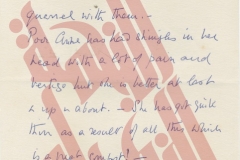 quarrel with them –
Poor Anne has had shingles in her
head with a lot of pain and
vertigo but she is better at last
& up & about. – She has got quite
thin as a result of all this which
is a great comfort! –